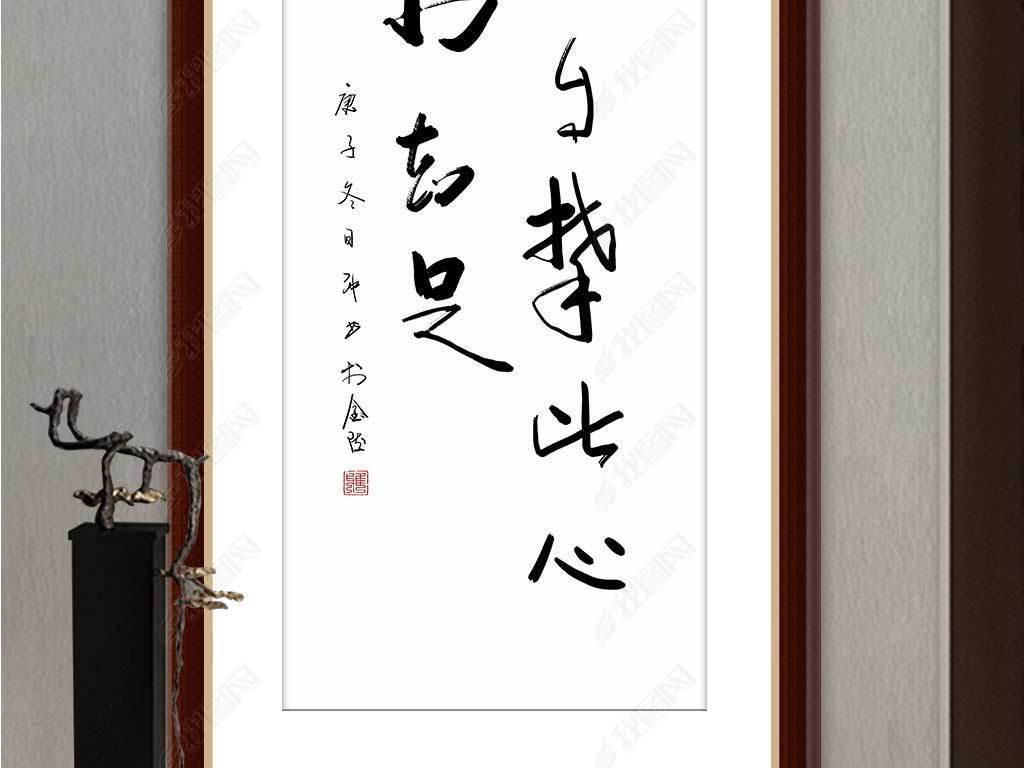 自擎此心
知足
庚子冬日
书于金陵
我图网